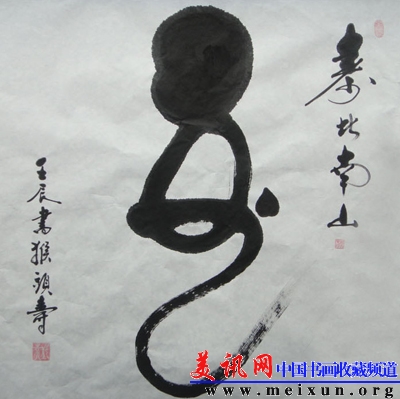 壽比南山
壽
壬辰書猴頭壽
美讯网 中国书画收藏频道
www.meixun.org